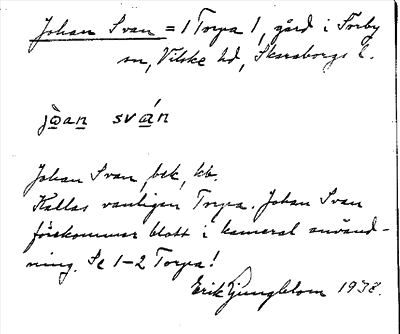 Johan Svan = 1 Torpa 1, gård i Torby
sn, Vilske hd, Skaraborgs l.
jòan sván
Johan Svan, bek, kb.
Kallas vanligen Torpa. Johan Svan
förekommer blott i kameral använd-
ning. Se 1-2 Torpa!
Erik Ljungblom 1938.